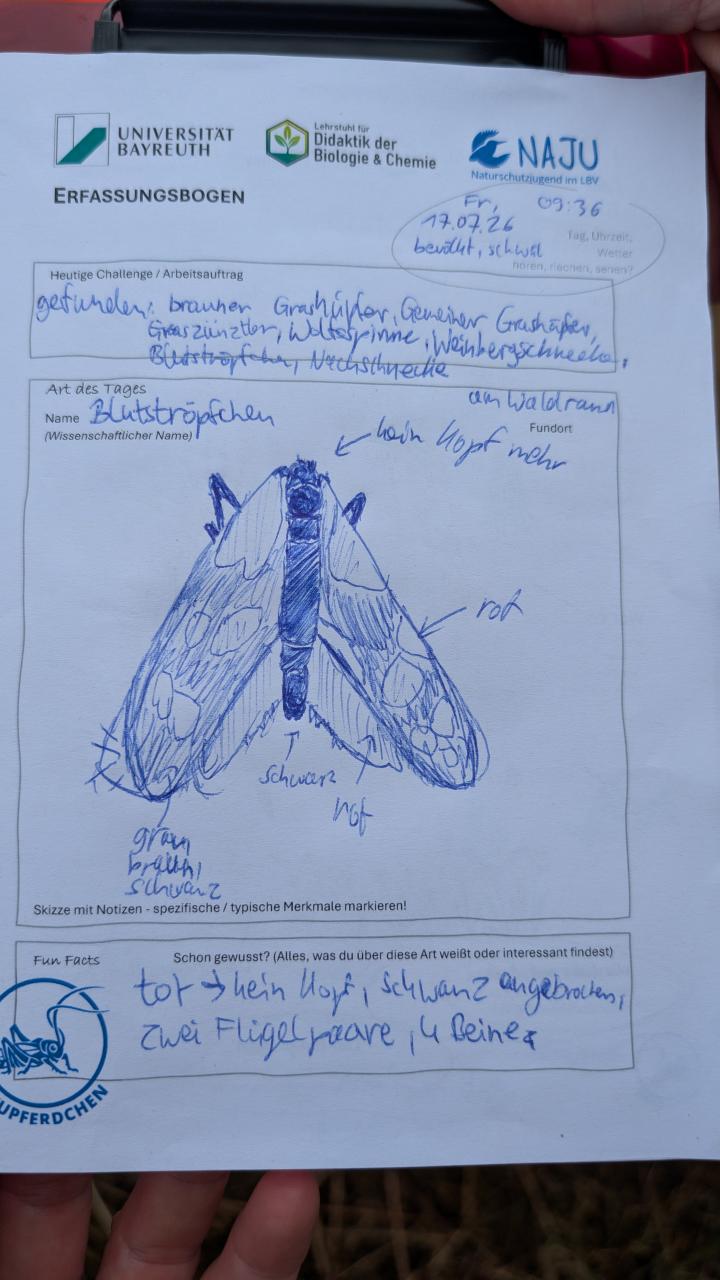 UNIVERSITÄT
BAYREUTH
Lehrstuhl für
Didaktik der
Biologie & Chemie
NAJU
Naturschutzjugend im LBV
ERFASSUNGSBOGEN
Fr, 09:36
17.07.26
bewölkt, schwül
Tag, Uhrzeit,
Wetter
hören, riechen, sehen?
Heutige Challenge / Arbeitsauftrag
gefunden: brauner Grashüpfer, Gemeiner Grashüpfer,
Graszünzler, Wolfsspinne, Weinbergschnecke,
Blutströpfchen, Nacktschnecke
Art des Tages
am Waldrand
Name Blutströpfchen
Fundort
(Wissenschaftlicher Name)
kein Kopf mehr
rot
schwarz
rot
grau,
braun,
schwarz
Skizze mit Notizen - spezifische / typische Merkmale markieren!
Fun Facts
Schon gewusst? (Alles, was du über diese Art weißt oder interessant findest)
tot → kein Kopf, schwanz angebrochen,
zwei Fligelpaare, 4 Beine
UPFERDCHEN